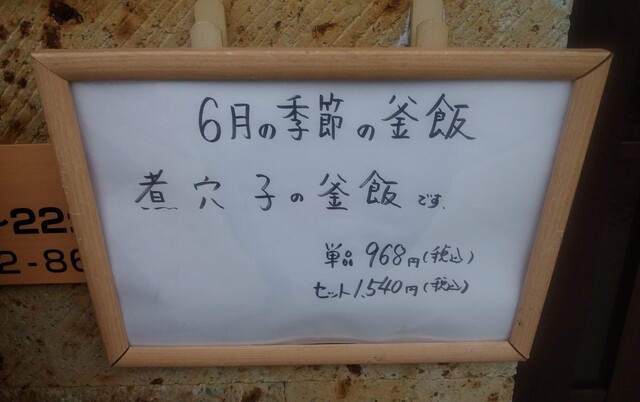 6月の季節の釜飯
煮穴子の釜飯です。
単品 968円(税込)
セット1,540円(税込)
~22:
2-86